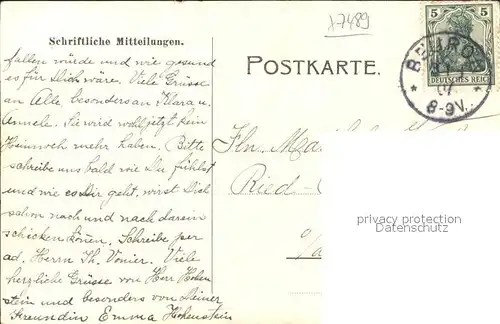 17489
Schriftliche Mitteilungen.
fallen würde und wie gesund
es für Dich wäre. Viele Grüsse
an Alle, besonders an Klara u.
Sie wird wohl jetzt kein
Heimweh mehr haben. Bitte
schreibe uns bald wie Du fühlst
und wie es Dir geht, wirst Dich
schon nach und nach darein
schicken können. Schreibe per
ad. Herrn Th. Vonier. Viele
herzliche Grüsse von Herr Hohen
stein und besonders von Deiner
Freundin Emma Hohenstein
POSTKARTE.
5 5
DEUTSCHES REICH
07
8-9V.
Fln.
Ried-
privacy protection
Datenschutz